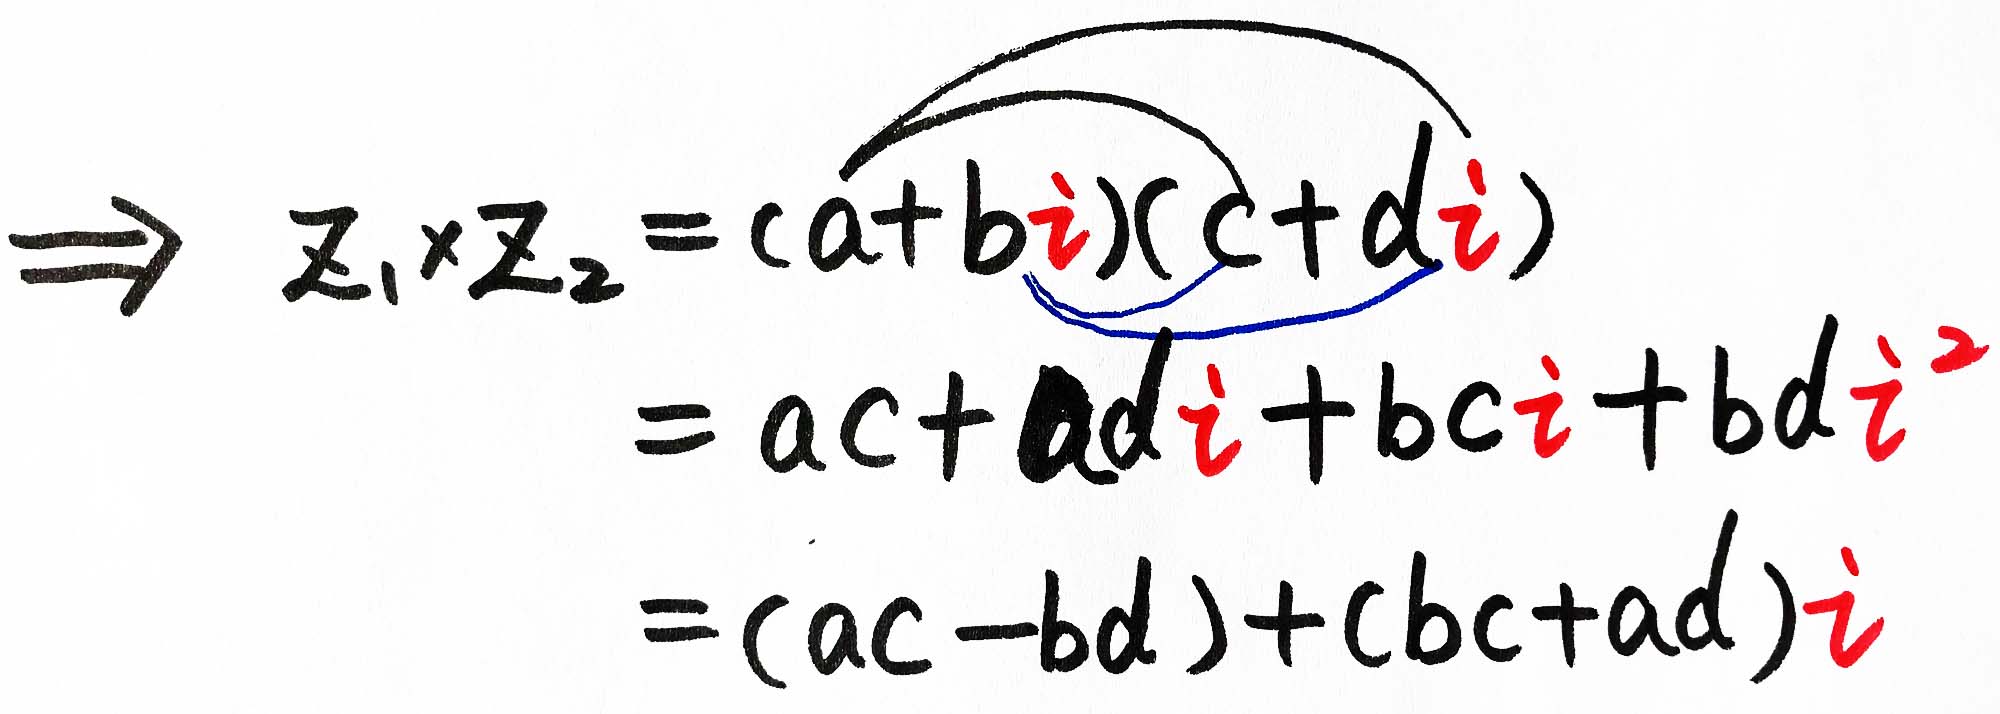 ⇒ Z₁×Z₂=(a+bi)(c+di)
=ac+adi+bci+bdi²
=(ac-bd)+(bc+ad)i